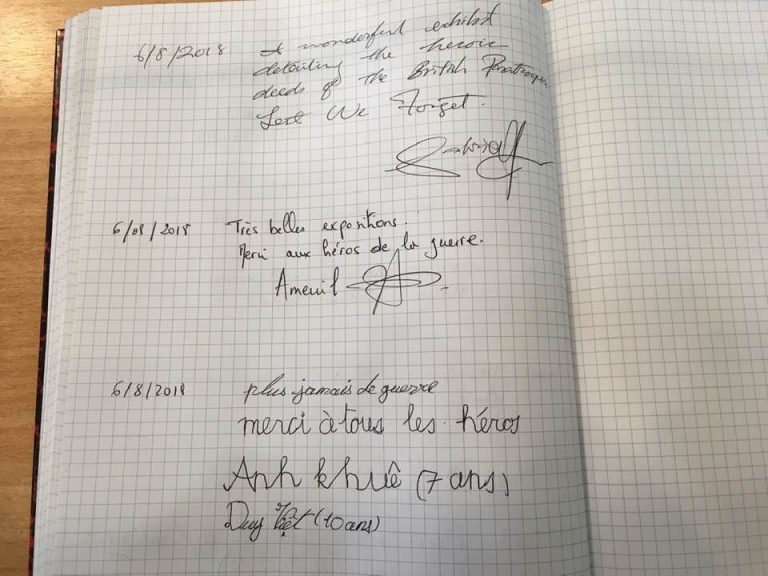 6/8/2018 A wonderful exhibit
detailing the heroic
deeds of the British
Lest We Forget.
6/08/2018 Très belles expositions.
Merci aux héros de la guerre.
Ameuil
6/8/2018 plus jamais de guerre
merci à tous les héros
Anh khuê (7 ans)
Duy Việt (10 ans)